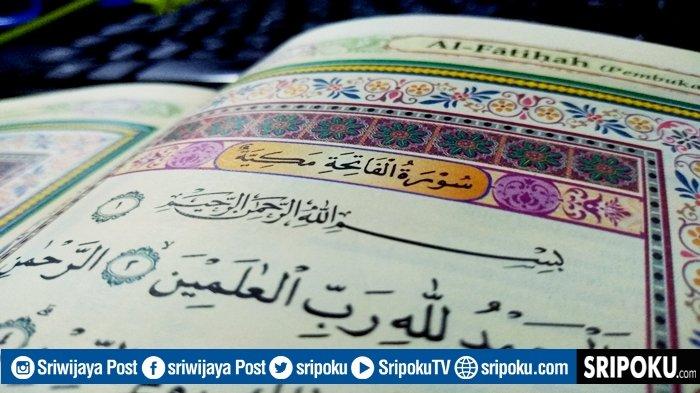 Al-Fatihah (Pembuka
سُوْرَةُ الْفَاتِحَةِ مَكِّيَّةٌ
بِسْمِ اللّٰهِ الرَّحْمٰنِ الرَّحِيْمِ ١
لِلّٰهِ رَبِّ الْعٰلَمِيْنَ ٢ الرَّحْمٰنِ
Sriwijaya Post sriwijaya Post sripoku SripokuTV sripoku.com SRIPOKU.com